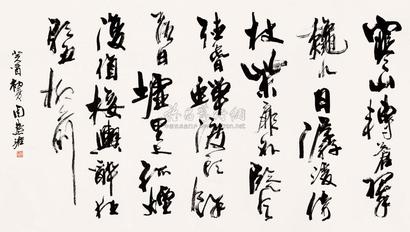 寒山轉蒼翠
穐水日潺湲倚
杖柴扉外臨風
聽暮蟬渡頭餘
落日墟里上孤煙
復值接輿醉狂
歌五柳前
癸酉初夏周慧珺